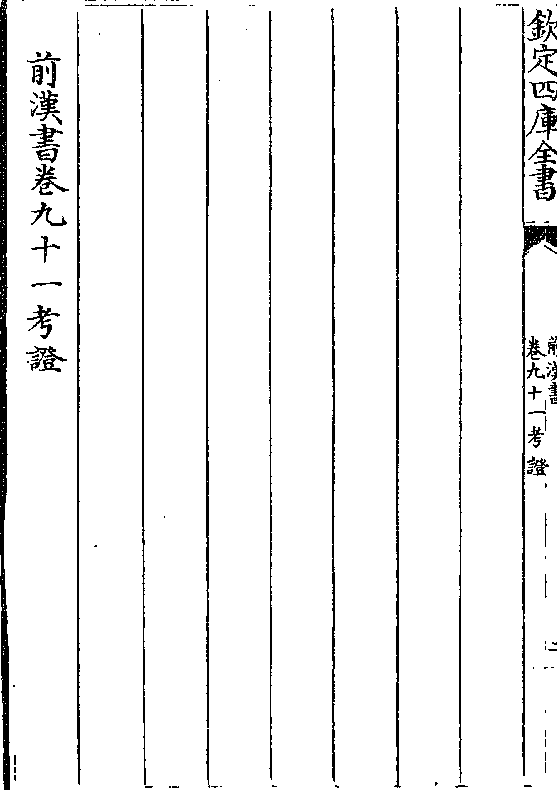 欽定四庫全書
前漢書
卷九十一考證
前漢書卷九十一考證